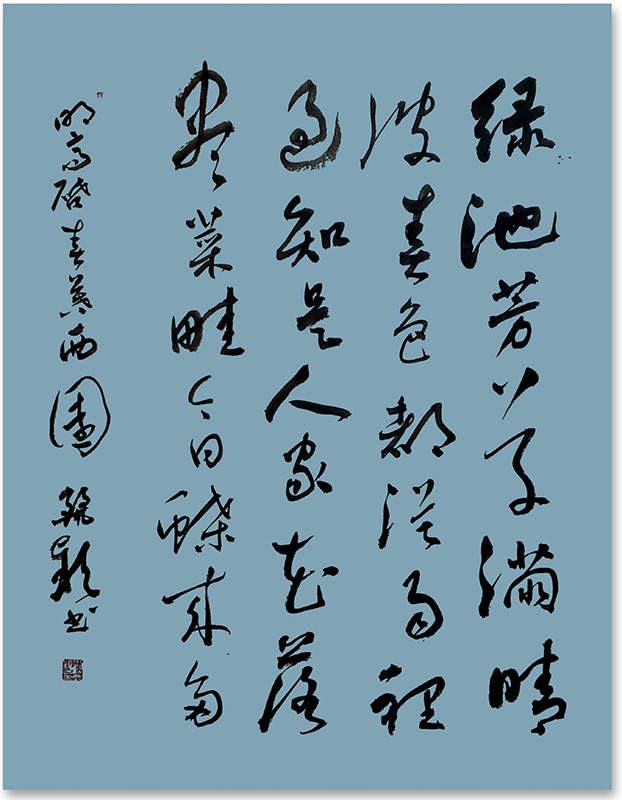 绿池芳草滿晴
波春色都從雨裡
過知是人家花落
盡菜畦今日蝶来多
明高啓春暮西園 书